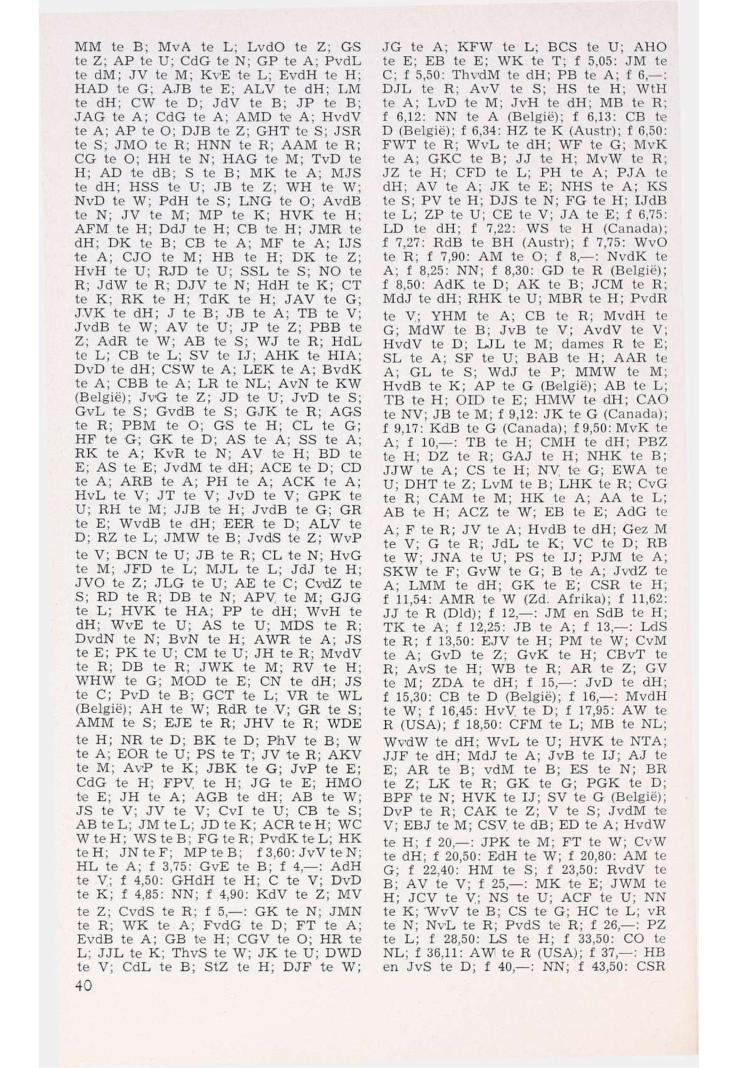 MM te B; MvA te L; LvdO te Z; GS
te Z; AP te U; CdG te N; GP te A; PvdL
te dM; JV te M; KvE te L; EvdH te H;
HAD te G; AJB te E; ALV te dH; LM
te dH; CW te D; JdV te B; JP te B;
JAG te A; CdG te A; AMD te A; HvdV
te A; AP te O; DJB te Z; GHT te S; JSR
te S; JMO te R; HNN te R; AAM te R;
CG te O; HH te N; HAG te M; TvD te
H; AD te dB; S te B; MK te A; MJS
te dH; HSS te U; JB te Z; WH te W;
NvD te W; PdH te S; LNG te O; AvdB
te N; JV te M; MP te K; HVK te H;
AFM te H; DdJ te H; CB te H; JMR te
dH; DK te B; CB te A; MF te A; IJS
te A; CJO te M; HB te H; DK te Z;
HvH te U; RJD te U; SSL te S; NO te
R; JdW te R; DJV te N; HdH te K; CT
te K; RK te H; TdK te H; JAV te G;
JVK te dH; J te B; JB te A; TB te V;
JvdB te W; AV te U; JP te Z; PBB te
Z; AdR te W; AB te S; WJ te R; HdL
te L; CB te L; SV te IJ; AHK te HIA;
DvD te dH; CSW te A; LEK te A; BvdK
te A; CBB te A; LR te NL; AvN te KW
(België); JvG te Z; JD te U; JvD te S;
GvL te S; GvdB te S; GJK te R; AGS
te R; PBM te O; GS te H; CL te G;
HF te G; GK te D; AS te A; SS te A;
RK te A; KvR te N; AV te H; BD te
E; AS te E; JvdM te dH; ACE te D; CD
te A; ARB te A; PH te A; ACK te A;
HvL te V; JT te V; JvD te V; GPK te
U; RH te M; JJB te H; JvdB te G; GR
te E; WvdB te dH; EER te D; ALV te
D; RZ te L; JMW te B; JvdS te Z; WvP
te V; BCN te U; JB te R; CL te N; HvG
te M; JFD te L; MJL te L; JdJ te H;
JVO te Z; JLG te U; AE te C; CvdZ te
S; RD te R; DB te N; APV te M; GJG
te L; HVK te HA; PP te dH; WvH te
dH; WvE te U; AS te U; MDS te R;
DvdN te N; BvN te H; AWR te A; JS
te E; PK te U; CM te U; JH te R; MvdV
te R; DB te R; JWK te M; RV te H;
WHW te G; MOD te E; CN te dH; JS
te C; PvD te B; GCT te L; VR te WL
(België); AH te W; RdR te V; GR te S;
AMM te S; EJE te R; JHV te R; WDE
te H; NR te D; BK te D; PhV te B; W
te A; EOR te U; PS te T; JV te R; AKV
te M; AvP te K; JBK te G; JvP te E;
CdG te H; FPV te H; JG te E; HMO
te E; JH te A; AGB te dH; AB te W;
JS te V; JV te V; CvI te U; CB te S;
AB te L; JM te L; JD te K; ACR te H; WC
W te H; WS te B; FG te R; PvdK te L; HK
te H; JN te F; MP te B; f 3,60: JvV te N;
HL te A; f 3,75: GvE te B; f 4,—: AdH
te V; f 4,50: GHdH te H; C te V; DvD
te K; f 4,85: NN; f 4,90: KdV te Z; MV
te Z; CvdS te R; f 5,—: GK te N; JMN
te R; WK te A; FvdG te D; FT te A;
EvdB te A; GB te H; CGV te O; HR te
L; JJL te K; ThvS te W; JK te U; DWD
te V; CdL te B; StZ te H; DJF te W;
40
JG te A; KFW te L; BCS te U; AHO
te E; EB te E; WK te T; f 5,05: JM te
C; f 5,50: ThvdM te dH; PB te A; f 6,—:
DJL te R; AvV te S; HS te H; WtH
te A; LvD te M; JvH te dH; MB te R;
f 6,12: NN te A (België); f 6,13: CB te
D (België); f 6,34: HZ te K (Austr); f 6,50:
FWT te R; WvL te dH; WF te G; MvK
te A; GKC te B; JJ te H; MvW te R;
JZ te H; CFD te L; PH te A; PJA te
dH; AV te A; JK te E; NHS te A; KS
te S; PV te H; DJS te N; FG te H; IJdB
te L; ZP te U; CE te V; JA te E; f 6,75:
LD te dH; f 7,22: WS te H (Canada);
f 7,27: RdB te BH (Austr); f 7,75: WvO
te R; f 7,90: AM te O; f 8,—: NvdK te
A; f 8,25: NN; f 8,30: GD te R (België);
f 8,50: AdK te D; AK te B; JCM te R;
MdJ te dH; RHK te U; MBR te H; PvdR
te V; YHM te A; CB te R; MvdH te
G; MdW te B; JvB te V; AvdV te V;
HvdV te D; LJL te M; dames R te E;
SL te A; SF te U; BAB te H; AAR te
A; GL te S; WdJ te P; MMW te M;
HvdB te K; AP te G (België); AB te L;
TB te H; OID te E; HMW te dH; CAO
te NV; JB te M; f 9,12: JK te G (Canada);
f 9,17: KdB te G (Canada); f 9,50: MvK te
A; f 10,—: TB te H; CMH te dH; PBZ
te H; DZ te R; GAJ te H; NHK te B;
JJW te A; CS te H; NV te G; EWA te
U; DHT te Z; LvM te B; LHK te R; CvG
te R; CAM te M; HK te A; AA te L;
AB te H; ACZ te W; EB te E; AdG te
A; F te R; JV te A; HvdB te dH; Gez M
te V; G te R; JdL te K; VC te D; RB
te W; JNA te U; PS te IJ; PJM te A;
SKW te F; GvW te G; B te A; JvdZ te
A; LMM te dH; GK te E; CSR te H;
f 11,54: AMR te W (Zd. Afrika); f 11,62:
JJ te R (Dld); f 12,—: JM en SdB te H;
TK te A; f 12,25: JB te A; f 13,—: LdS
te R; f 13,50: EJV te H; PM te W; CvM
te A; GvD te Z; GvK te H; CBvT te
R; AvS te H; WB te R; AR te Z; GV
te M; ZDA te dH; f 15,—: JvD te dH;
f 15,30: CB te D (België); f 16,—: MvdH
te W; f 16,45: HvV te D; f 17,95: AW te
R (USA); f 18,50: CFM te L; MB te NL;
WvdW te dH; WvL te U; HVK te NTA;
JJF te dH; MdJ te A; JvB te IJ; AJ te
E; AR te B; vdM te B; ES te N; BR
te Z; LK te R; GK te G; PGK te D;
BPF te N; HVK te IJ; SV te G (België);
DvP te R; CAK te Z; V te S; JvdM te
V; EBJ te M; CSV te dB; ED te A; HvdW
te H; f 20,—: JPK te M; FT te W; CvW
te dH; f 20,50: EdH te W; f 20,80: AM te
G; f 22,40: HM te S; f 23,50: RvdV te
B; AV te V; f 25,—: MK te E; JWM te
H; JCV te V; NS te U; ACF te U; NN
te K; WvV te B; CS te G; HC te L; vR
te N; NvL te R; PvdS te R; f 26,—: PZ
te L; f 28,50: LS te H; f 33,50: CO te
NL; f 36,11: AW te R (USA); f 37,—: HB
en JvS te D; f 40,—: NN; f 43,50: CSR